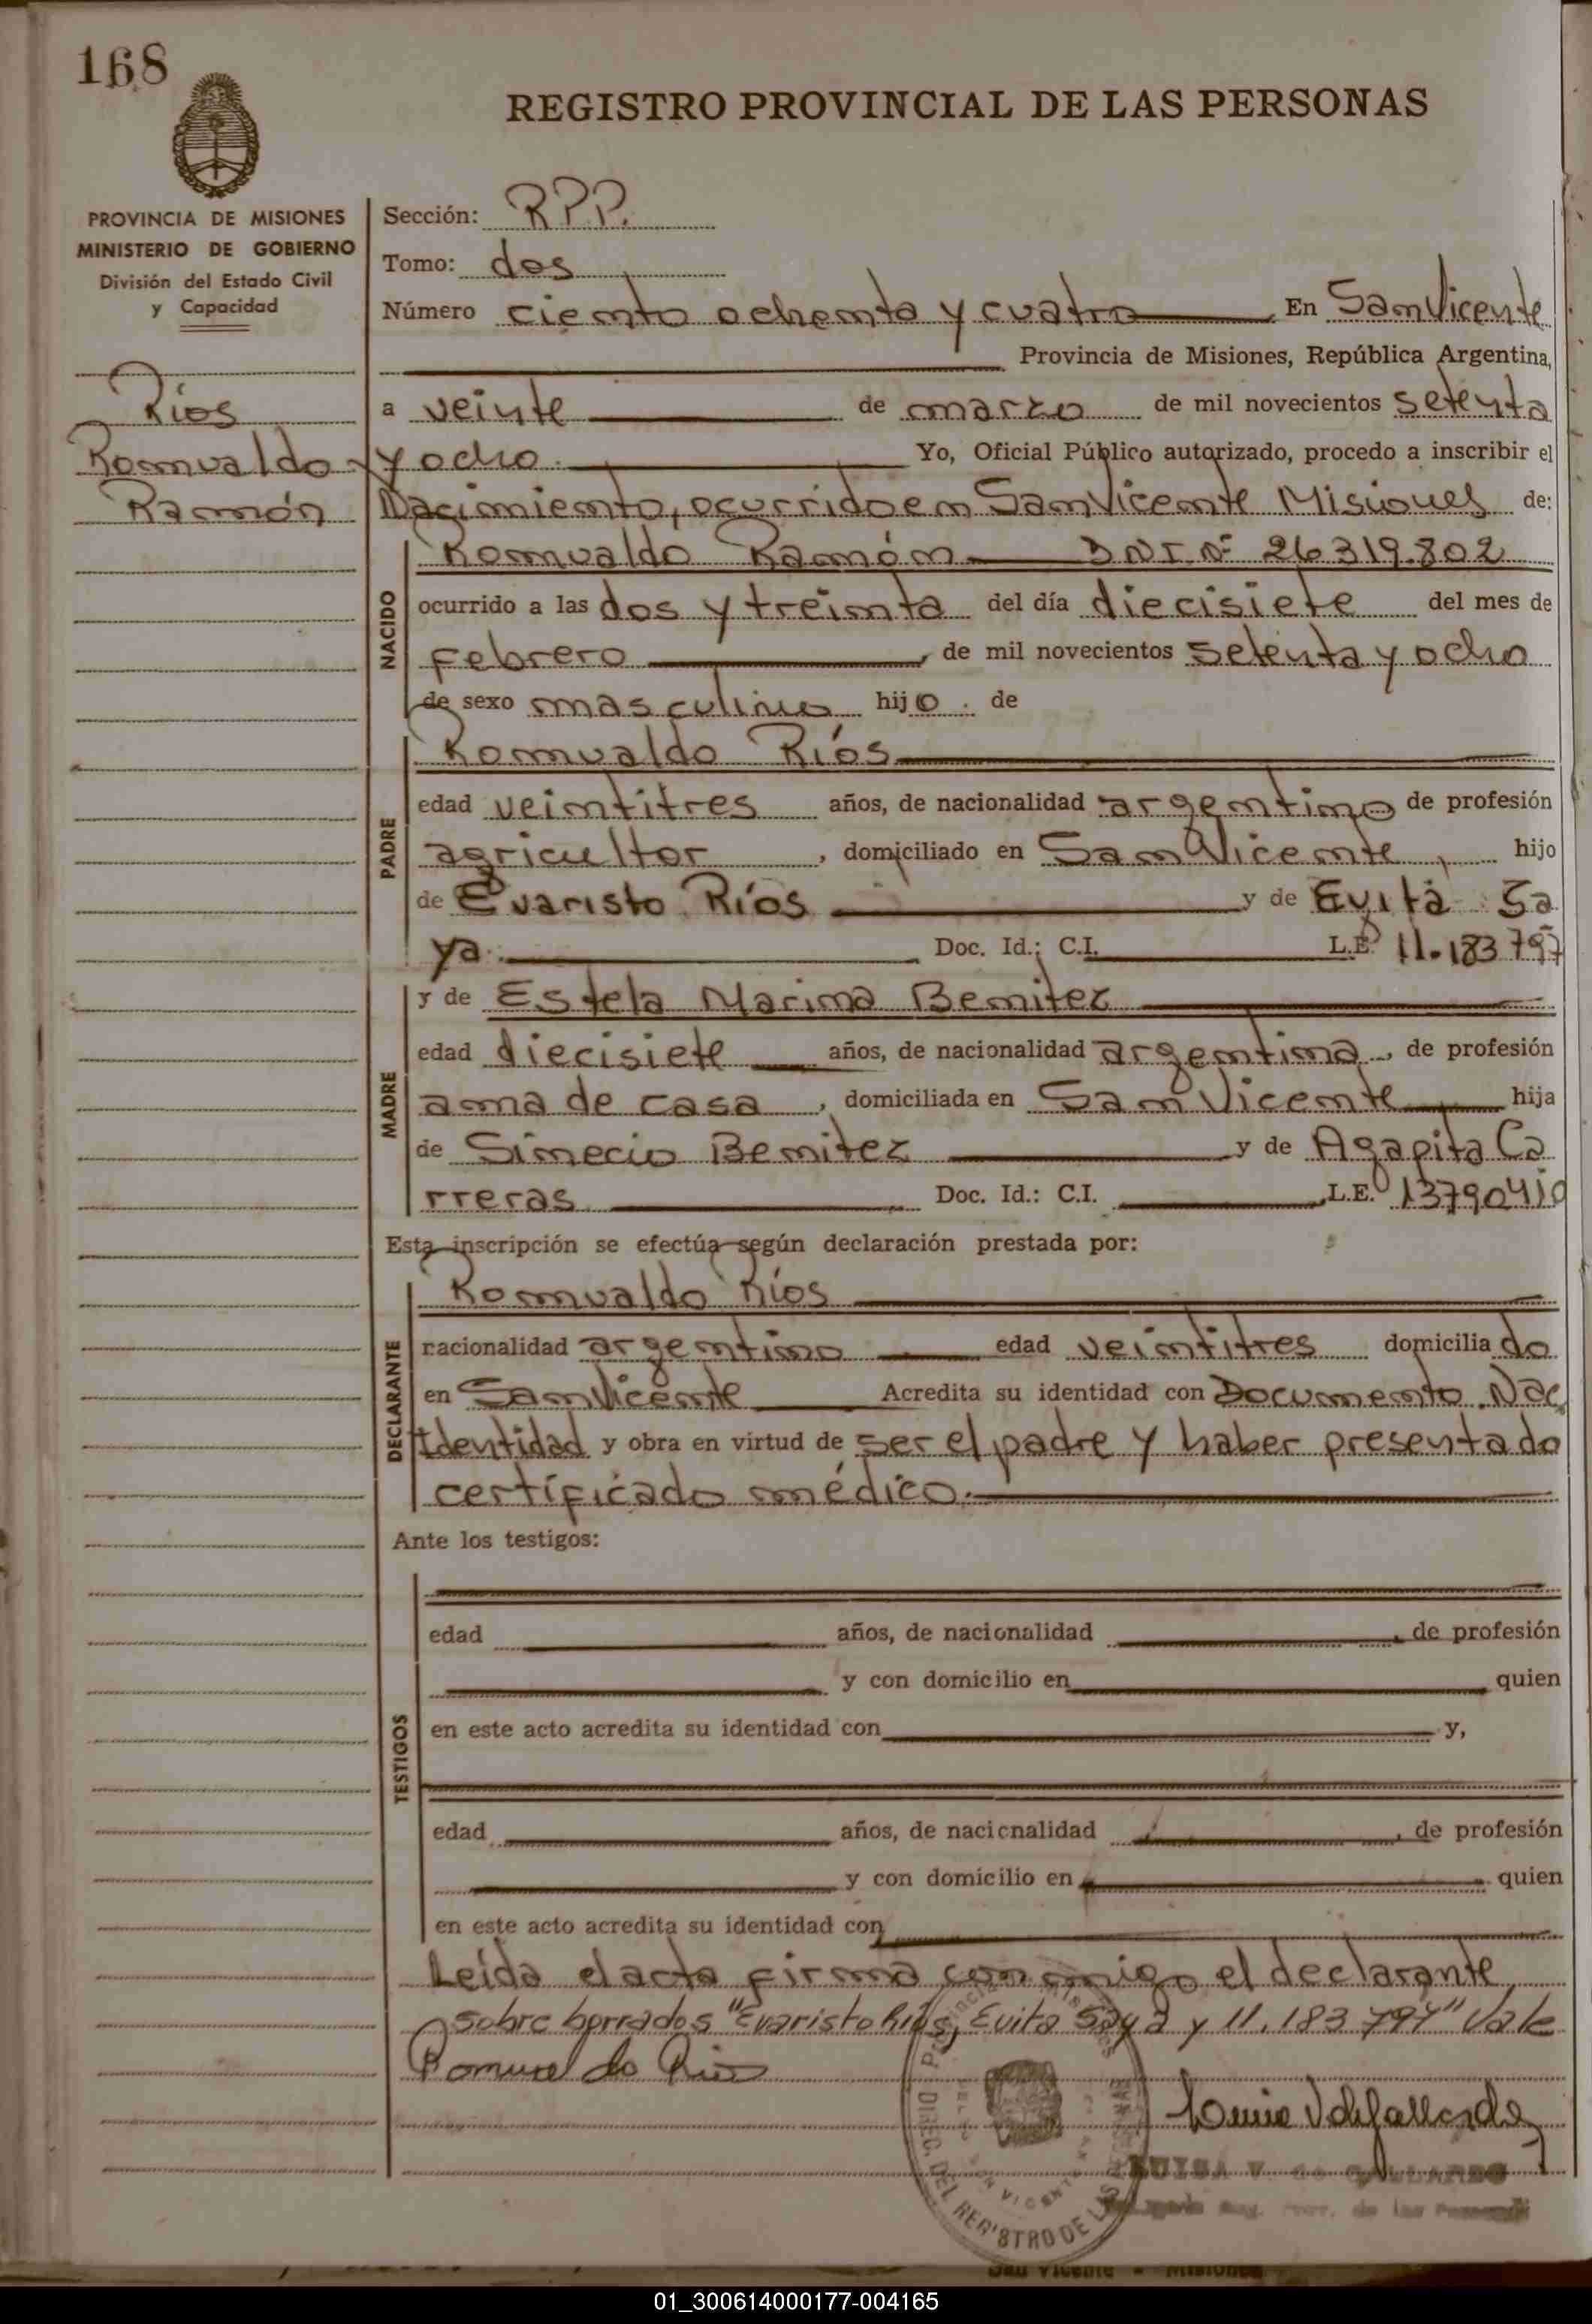 168
REGISTRO PROVINCIAL DE LAS PERSONAS
PROVINCIA DE MISIONES
MINISTERIO DE GOBIERNO
División del Estado Civil
y Capacidad
Ríos
Romualdo
Ramón
Sección: R.P.P.
Tomo: dos
Número ciento ochenta y cuatro En San Vicente
Provincia de Misiones, República Argentina,
a veinte de marzo de mil novecientos setenta
y ocho. Yo, Oficial Público autorizado, procedo a inscribir el
Nacimiento, ocurrido en San Vicente Misiones de:
NACIDO
Romualdo Ramón DNI. Nº 26.319.802
ocurrido a las dos y treinta del día diecisiete del mes de
febrero, de mil novecientos setenta y ocho
de sexo masculino hijo. de
PADRE
Romualdo Ríos
edad veintitres años, de nacionalidad argentino de profesión
agricultor, domiciliado en San Vicente, hijo
de Evaristo Ríos y de Evita Sa
ya. Doc. Id.: C.I. L.E. 11.183797
MADRE
y de Estela Marina Benitez
edad diecisiete años, de nacionalidad argentina, de profesión
ama de casa, domiciliada en San Vicente, hija
de Simecio Benitez y de Agapita Ca
rreras Doc. Id.: C.I. L.E. 13790410
Esta inscripción se efectúa según declaración prestada por:
DECLARANTE
Romualdo Ríos
nacionalidad argentino edad veintitres domiciliado
en San Vicente Acredita su identidad con Documento Nac
Identidad y obra en virtud de ser el padre y haber presentado
certificado médico.
Ante los testigos:
TESTIGOS
edad años, de nacionalidad, de profesión
y con domicilio en quien
en este acto acredita su identidad con y,
edad años, de nacionalidad, de profesión
y con domicilio en quien
en este acto acredita su identidad con
Leída el acta firma conmigo el declarante
sobre borrados "Evaristo Ríos, Evita Saya y 11.183.797" Vale
Romualdo Rios
DIREC. DEL REGISTRO DE LAS
LUISA V. de GALLARDO
San Vicente - Misiones
01_300614000177-004165